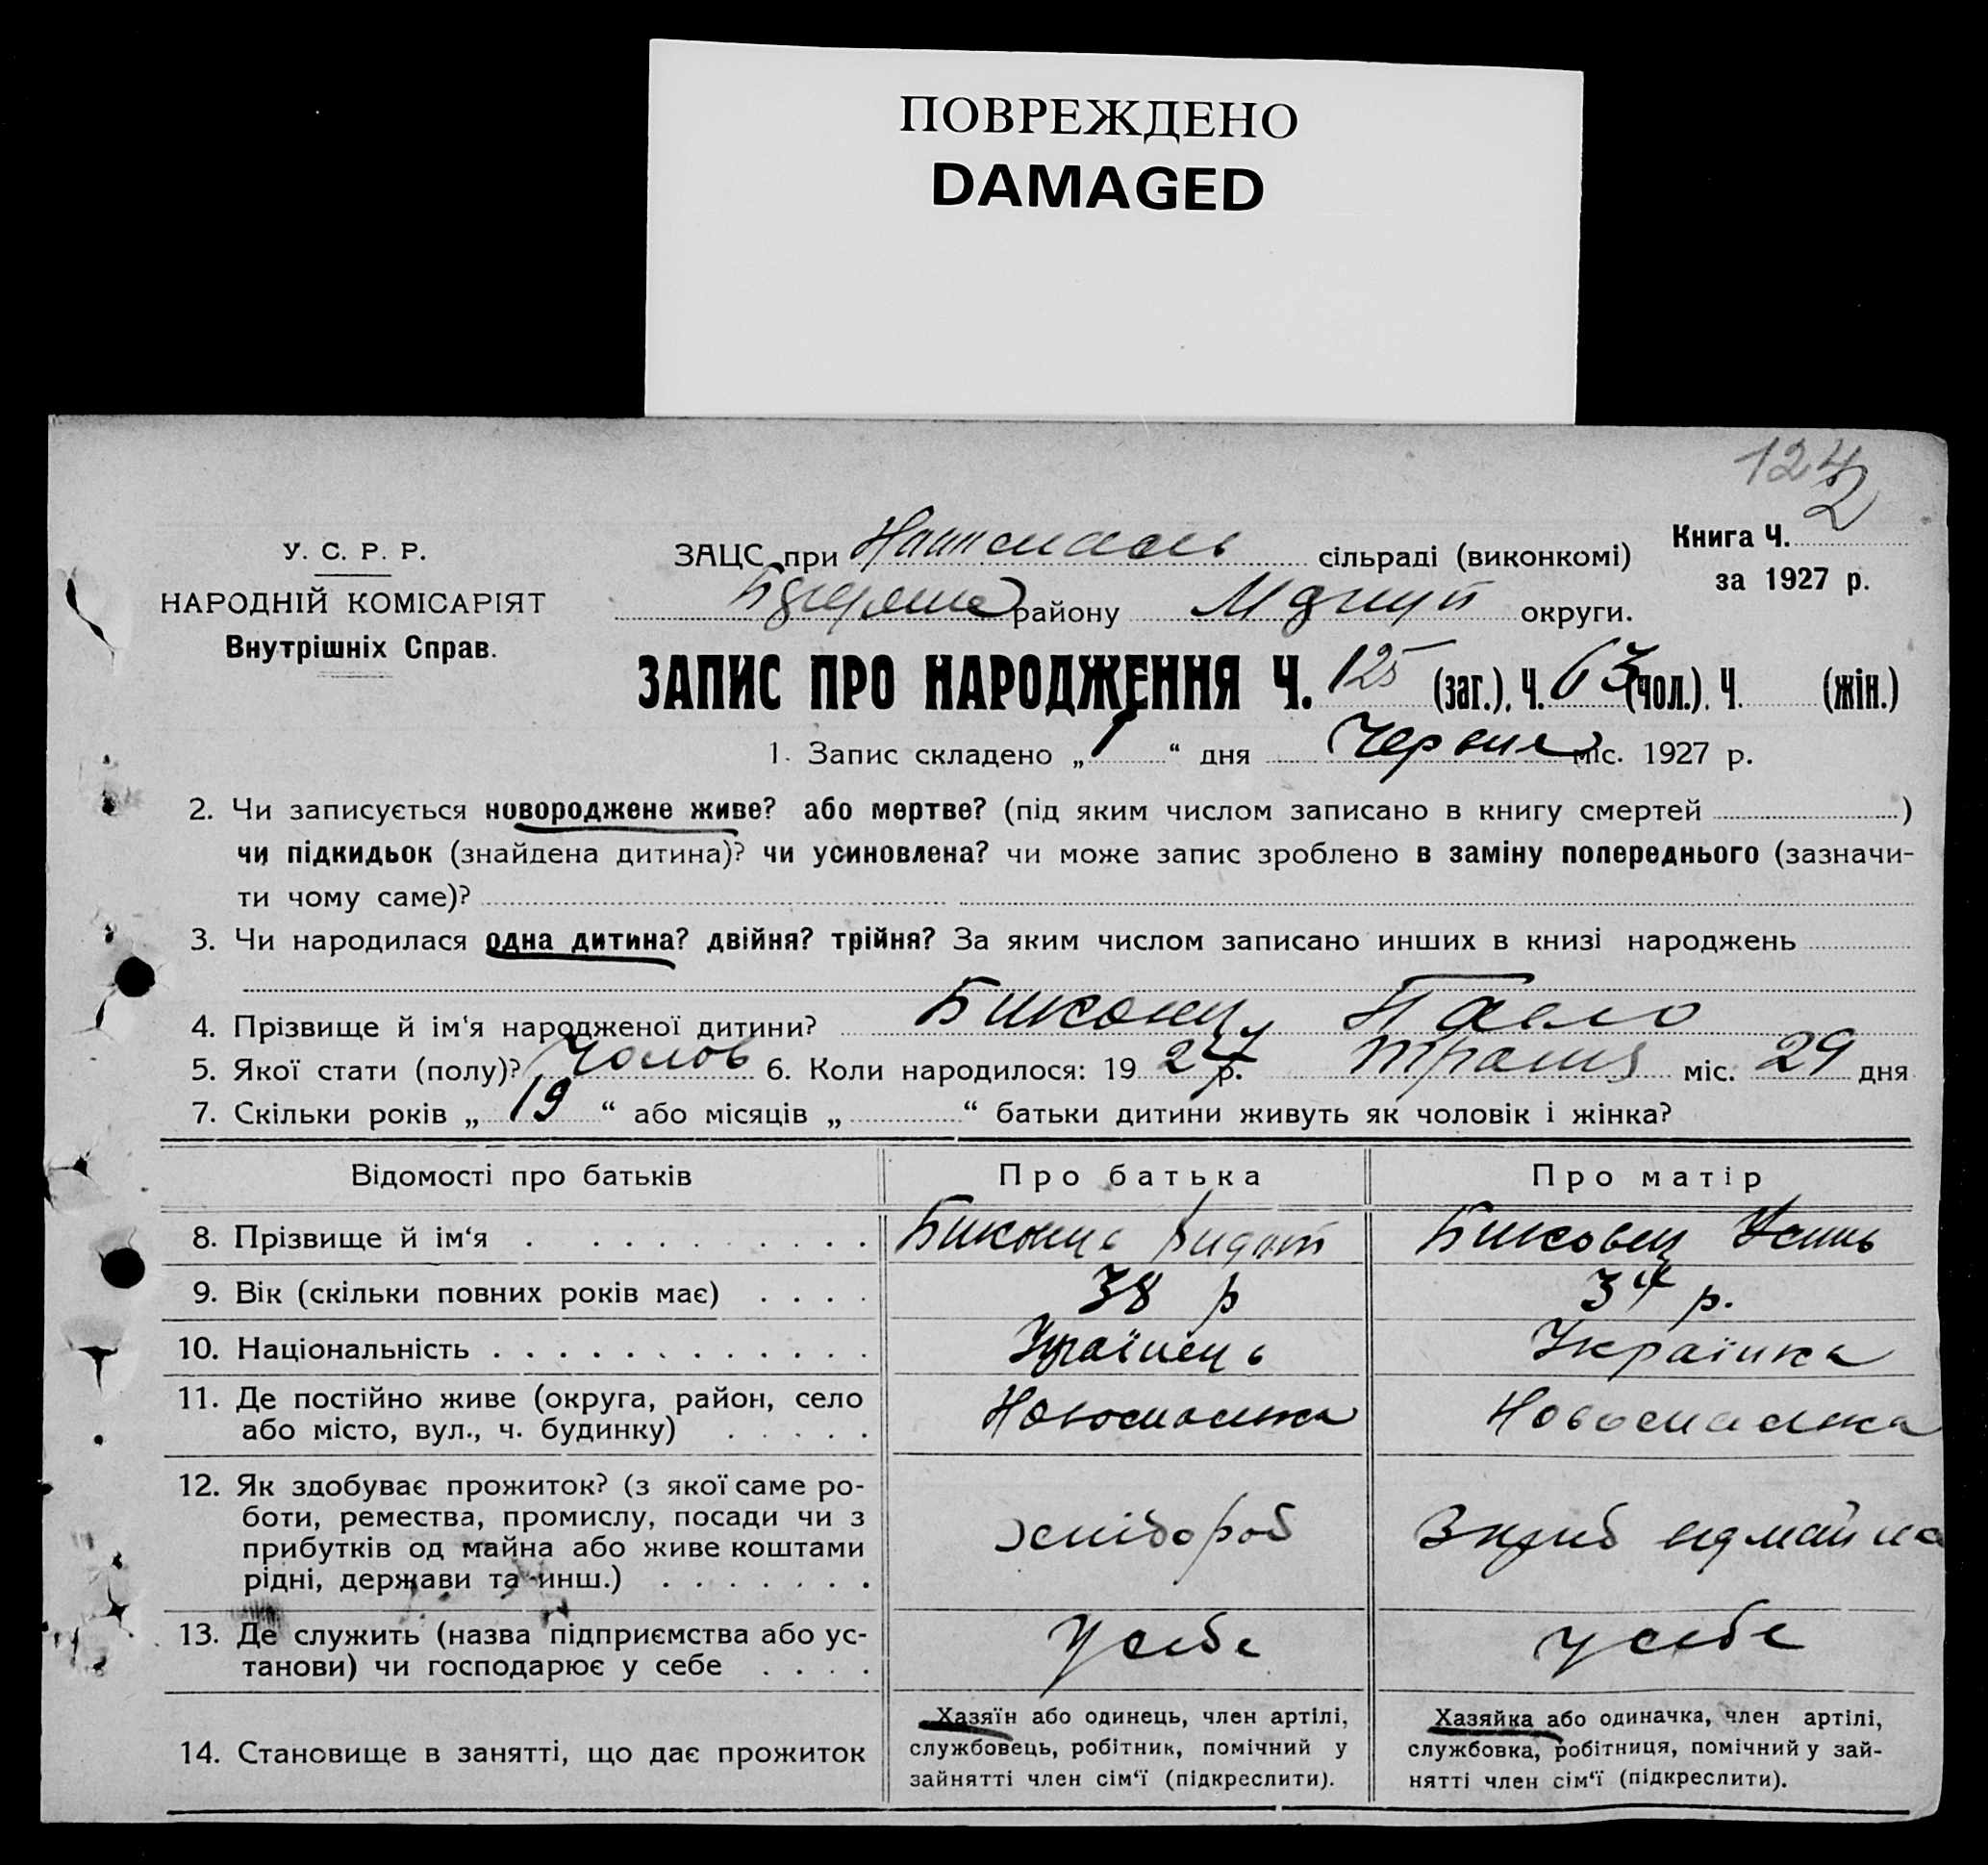 ПОВРЕЖДЕНО
DAMAGED
124
2
У. С. Р. Р.
НАРОДНІЙ КОМІСАРІЯТ
Внутрішніх Справ.
ЗАЦС при сільраді (виконкомі)
району округи.
Книга Ч.
за 1927 р.
ЗАПИС ПРО НАРОДЖЕННЯ Ч. 125 (заг.), Ч. 63 (чол.), Ч. (жін.)
1. Запис складено „ 1 “ дня Червня міс. 1927 р.
2. Чи записується новороджене живе? або мертве? (під яким числом записано в книгу смертей )
чи підкидьок (знайдена дитина)? чи усиновлена? чи може запис зроблено в заміну попереднього (зазначи-
ти чому саме)?
3. Чи народилася одна дитина? двійня? трійня? За яким числом записано инших в книзі народжень
4. Прізвище й ім‘я народженої дитини? Павло
5. Якої стати (полу)? Чолов 6. Коли народилося: 19 27 р. міс. 29 дня
7. Скільки років „ 19 “ або місяців „ “ батьки дитини живуть як чоловік і жінка?
Відомості про батьків Про батька Про матір
8. Прізвище й ім‘я . . . . . . . . . . Биковец
9. Вік (скільки повних років має) . . . . 38 р 34 р.
10. Національність . . . . . . . . . . . . . Українець Українка
11. Де постійно живе (округа, район, село
або місто, вул., ч. будинку) . . . . . Новоспаська Новоспаська
12. Як здобуває прожиток? (з якої саме ро-
боти, ремества, промислу, посади чи з
прибутків од майна або живе коштами
рідні, держави та инш.) . . . . . . . хлібороб
13. Де служить (назва підприємства або ус-
танови) чи господарює у себе . . . . У себе у себе
14. Становище в занятті, що дає прожиток
Хазяїн або одинець, член артілі,
службовець, робітник, помічний у
зайнятті член сім‘ї (підкреслити).
Хазяйка або одиначка, член артілі,
службовка, робітниця, помічний у зай-
нятті член сім‘ї (підкреслити).